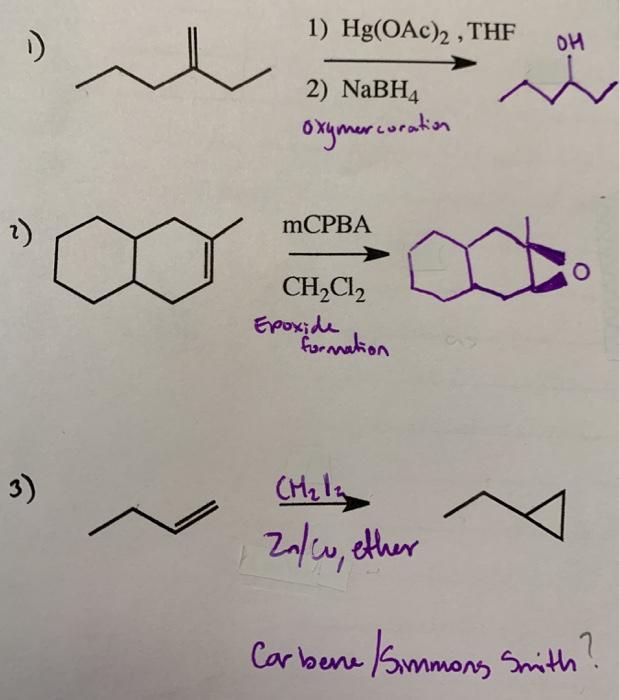 1)
1) Hg(OAc)2 , THF
2) NaBH4
oxymercuration
OH
2)
mCPBA
CH2Cl2
Epoxide
formation
O
3)
CH2I2
Zn/Cu, ether
Carbene/Simmons Smith?